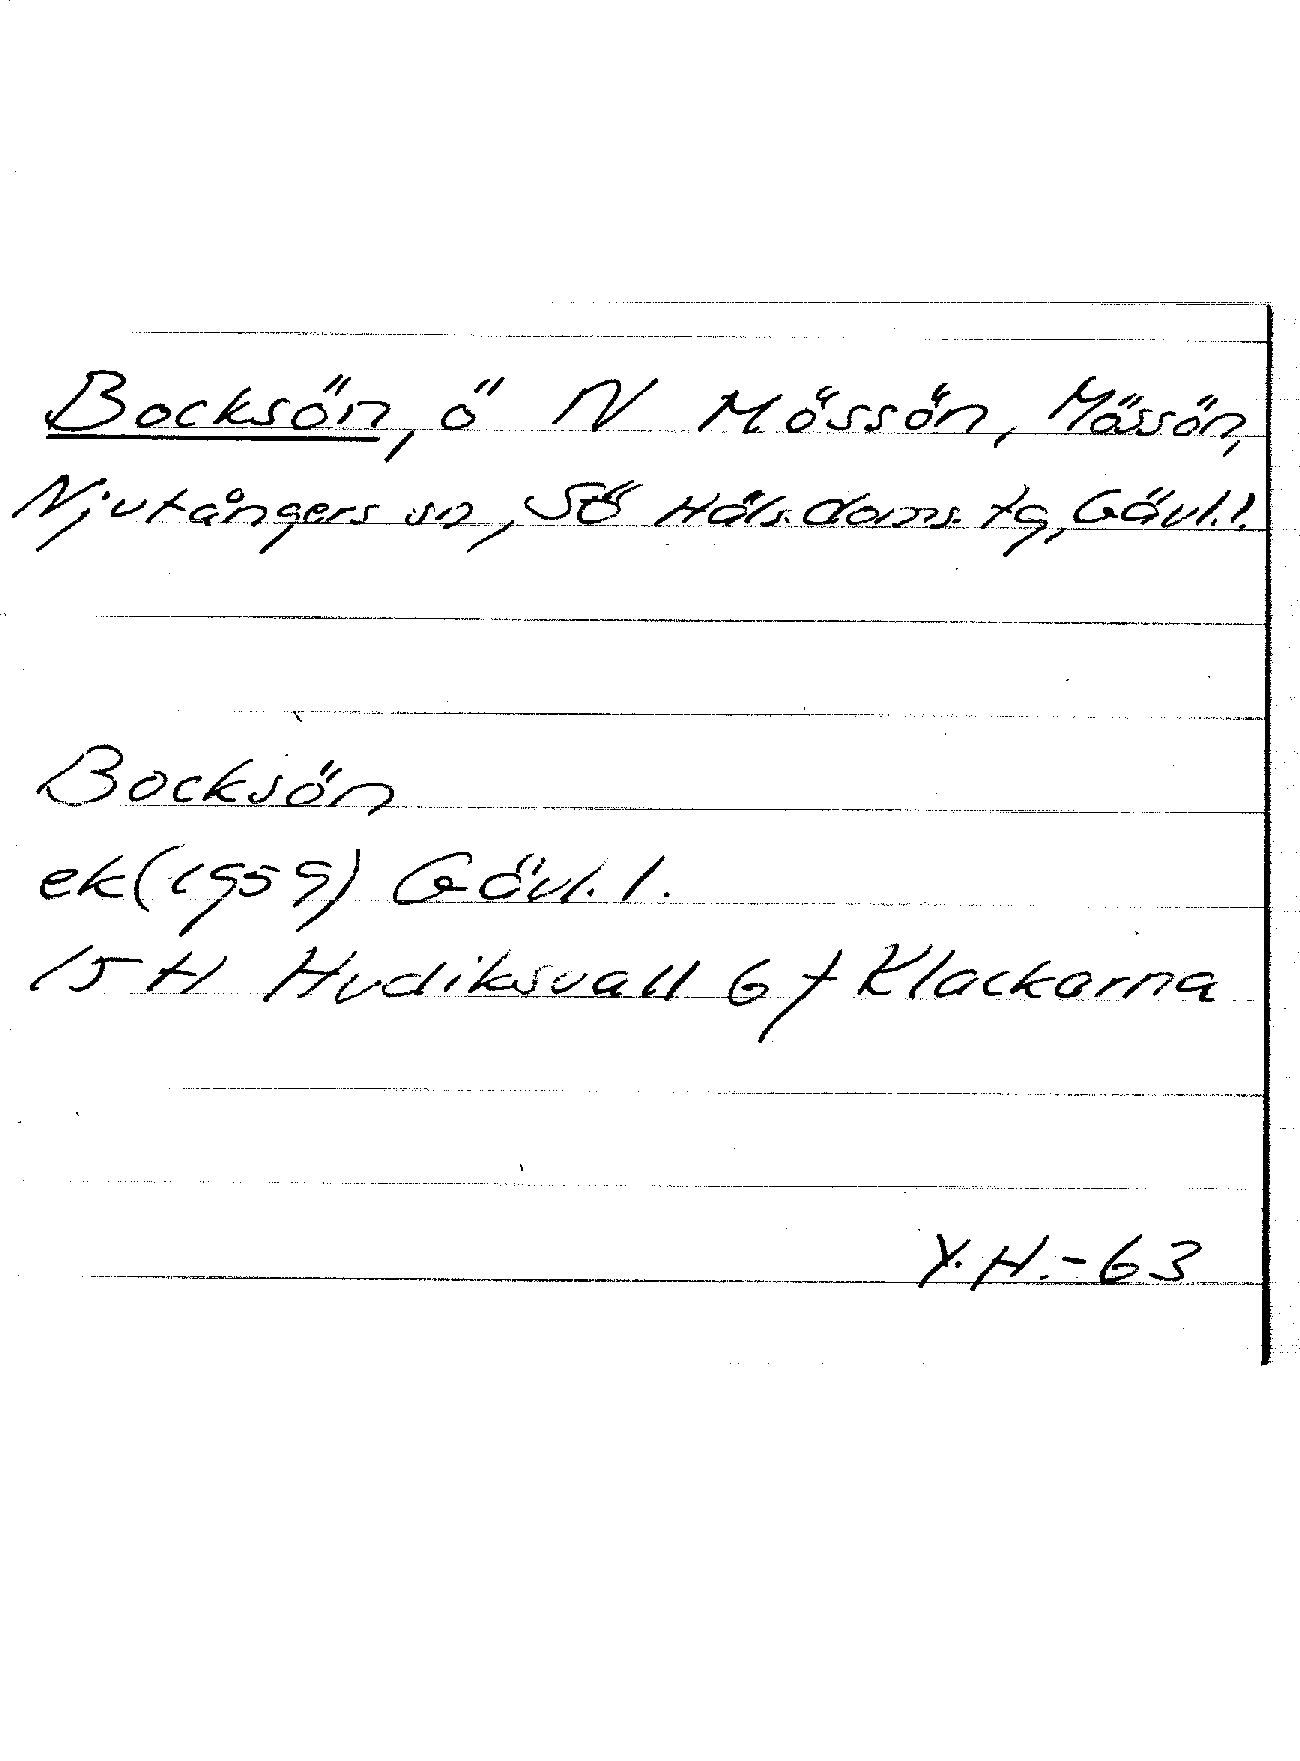 Bocksön, ö N Mössön, Mössön,
Njutångers sn, SÖ Häls. doms. tg, Gävl. l.
Bocksön
ek (1959) Gävl. l.
15 H Hudiksvall 6 f Klackarna
Y. H. -63